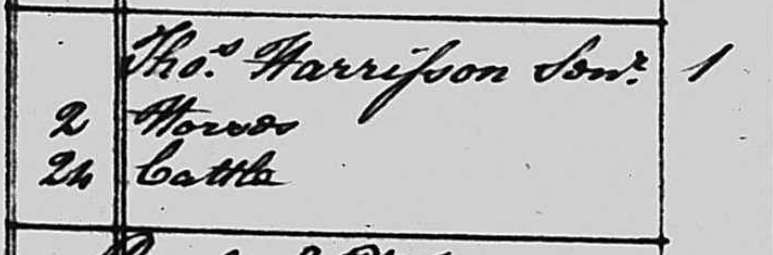 Thos. Harrisson Senr. 1
2 Horses
24 Cattle